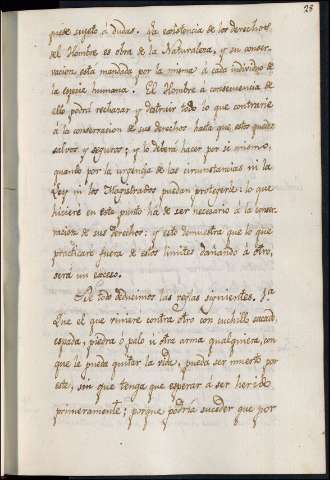 28
quede sujeto á dudas. La existencia de los derechos
del Hombre es obra de la Naturaleza, y su conser-
vacion está mandada por la misma á cada individuo de
la especie humana. El Hombre á consecuencia de
ello podrá rechazar y destruir todo lo que contrarie
á la conservacion de sus derechos hasta que estos queden
salvos y seguros; y lo deberá hacer por si mismo,
quanto por la urgencia de las circunstancias ni la
Ley ni los Magistrados puedan protegerle: lo que
hiciere en este punto há de ser necesario á la conser-
vacion de sus derechos; y esto demuestra que lo que
practicare fuera de estos limites dañando á otro,
será un exceso.
De todo deducimos las reglas siguientes. 1.ª
Que el que viniere contra otro con cuchillo sacado,
espada, piedra o palo ú otra arma qualquiera, con
que le pueda quitar la vida, pueda ser muerto por
este, sin que tenga que esperar á ser herido
primeramente; porque podria suceder que por